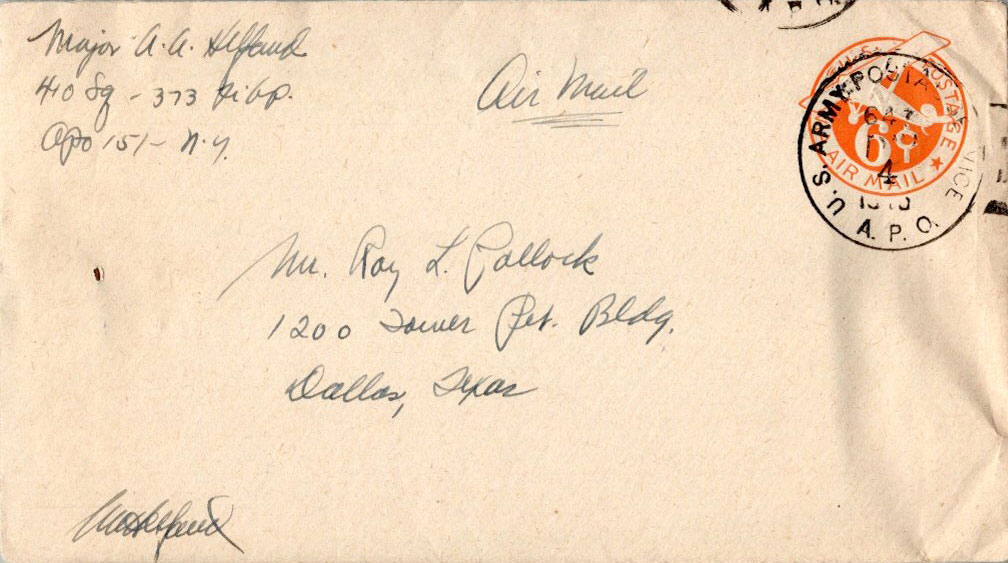 Major A. A. Helfand
410 Sq - 373 Ftr Gp.
APO 151 - N.Y.
Air Mail
U.S. POSTAGE
6¢
AIR MAIL
U.S. ARMY POSTAL SERVICE
4
A. P. O.
Mr. Roy L. Pollock
1200 Tower Pet. Bldg.
Dallas, Texas